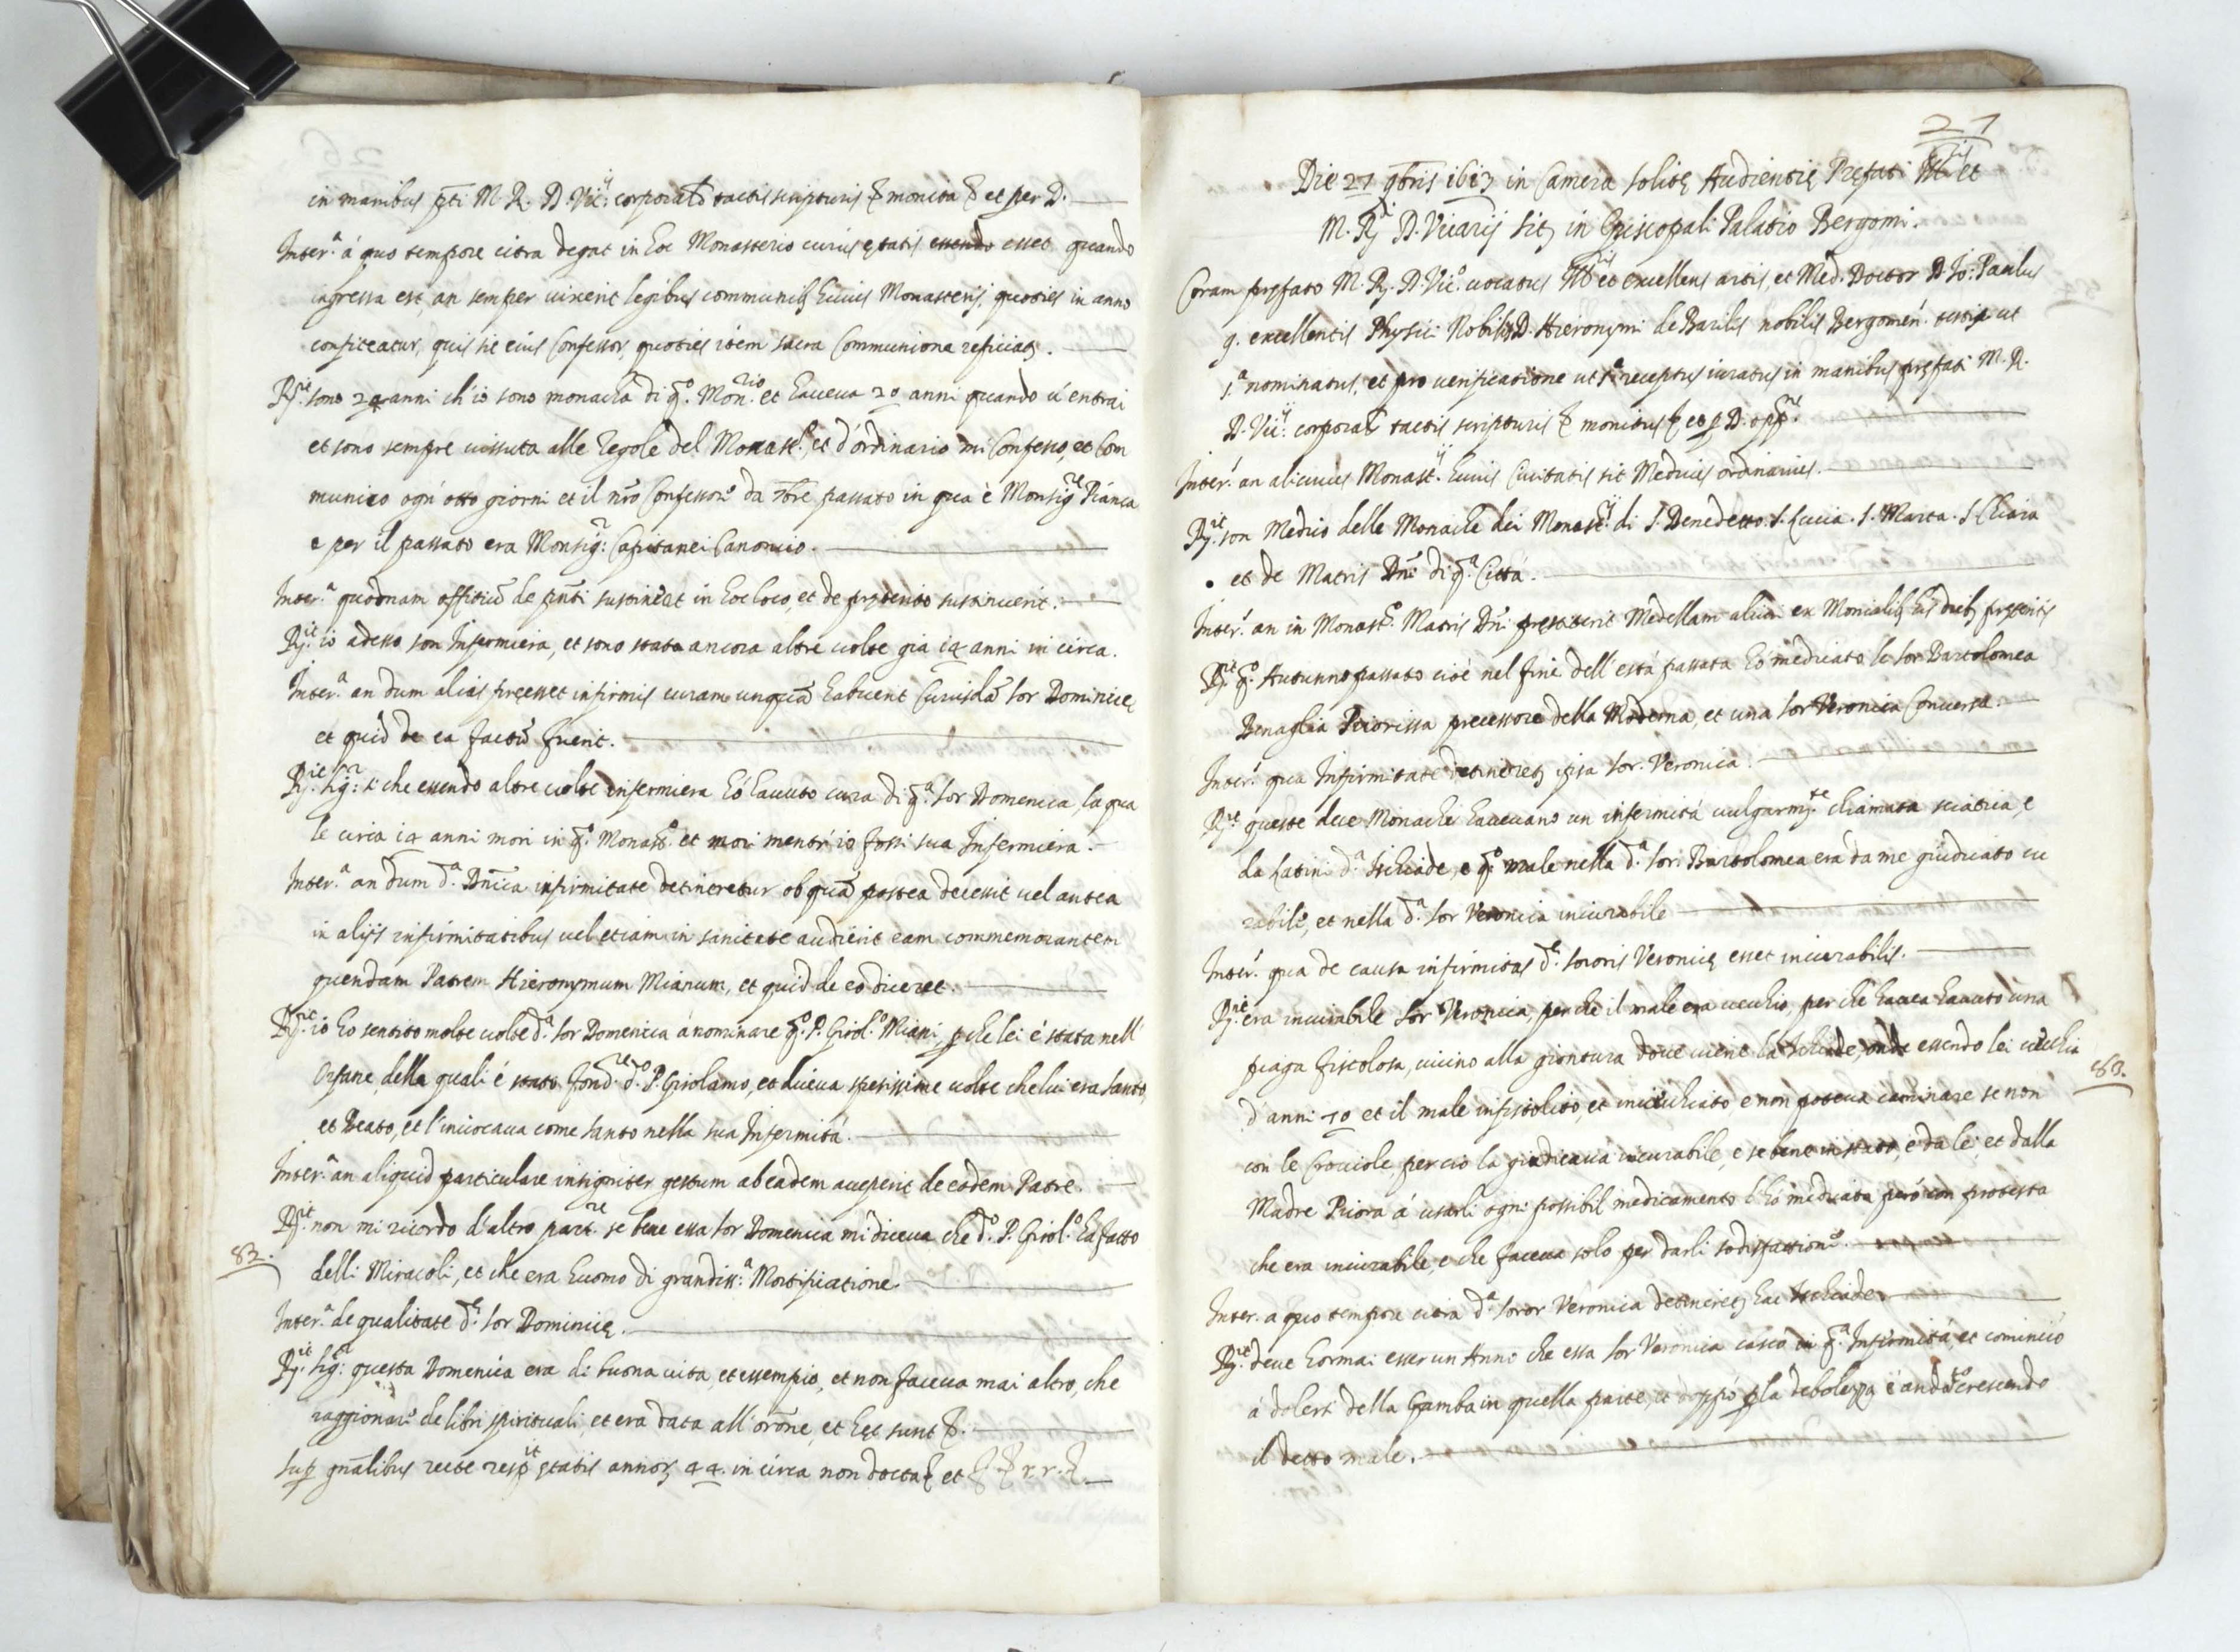 in manibus p̃ti M. R. D. Vic:ij corporal̃ tactis scripturis & monita & et per D.
Inter.a á quo tempore citra degat in hoc Monasterio cuius ętatis essendo esset quando
ingressa est, an semper vixerit legibus communib; huius Monasterij, quoties in anno
confiteatur, quis sit eius Confessor, quoties item sacra Communione reficiat;.
Rx.it sono 24 anni ch'io sono monacha di q.o Mon.rio et haveva 20 anni quando v'entrai
et sono sempre vissuta alle regole del Monast.o, et d'ordinario mi confesso, et Com
munico ogn'otto giorni et il nr̃o Confessore da 7bre passato in qua è Monsig.re Pianca
e per il passato era Monsig:r Capitanei Canonico.
Inter.a quodnam offitiũ de pñti sustineat in hoc loco, et de pręterito sustinuerit.
Rx.it io adesso son Infermiera, et sono stata ancora altre volte gia 14 anni in circa.
Inter.a an dum alias pręesset infirmis curam unquã habuerit cuiusdã sor Dominicę
et quid de ea factũ fuerit.
Rx.it Sig:r sì che essendo altre volte infermiera hó havuto cura di q.a sor Domenica, la qua
le circa 14 anni morì in q.o Monast.o et morì mentr'io fossi sua Infermiera.
Inter.a an dum d.a Dñica infirmitate detineretur ob quã postea decessit vel antea
in alijs infirmitatibus vel etiam in sanitate audierit eam commemorantem
quendam Patrem Hieronymum Mianum, et quid de eo diceret.
Rx.it io ho sentito molte volte d.a sor Domenica á nominare q.o P. Girol.o Miani, p che lei é stata nell'
Orfane, della quali é stato fond.re d.o P. Girolamo, et diceva spesissime volte che lui era santo,
et Beato, et l'invocava come santo nella sua Infermitá.
Inter.a an aliquid particulare insigniter gestum ab eadem acceperit de eodem Patre.
Rx.it non mi ricordo d'altro part.re se bene essa sor Domenica mi diceva che d.o P. Girol.o ha fatto
82. delli Miracoli, et che era huomo di grandiss:a Mortificatione
Inter.a de qualitate d.ę sor Dominicę.
Rx.it Sig:r questa Domenica era di buona vita, et essempio, et non faceva mai altro, che
raggionare de libri spirituali, et era data all'orõne, et hęc sunt &.
Sup gñalibus recte resp.it ętatis annor; 44. in circa non docta & et &. &. r. r. &.
27
Die 27 9bris 1613 in Camera solitę Audientię Pręfati Ill.is et
M. R.di D. Vicarij sit; in Episcopali Palatio Bergomi.
Coram pręfato M. R. D. Vic.o vocatus Ill.is et excellens artis, et Med. Doctor D. Jo: Paulus
q. excellentis Physici Nobilis D. Hieronymi de Barilis nobilis Bergomen. testis ut
s.a nominatus, et pro verificatione ut s.a receptus iuratus in manibus pręfati M. R.
D. Vic:ij corporal̃ tactis scripturis & monitus & et p D. opp.ne.
Inter.s an alicuius Monast.ij huius Civitatis sit Medicus ordinarius.
Rx.it son Medico delle Monache dei Monast.ij di S. Benedetto. S. Lucia. S. Marta. S. Chiara
et de Matris Dñi di q.a Città.
Inter.s an in Monast.o Matris Dñi pręstiterit Medellam alicui ex Monialib; his dieb; pręteritis
Rx.it q.o Autunno passato cioè nel fine dell'està passata hó medicato le sor Bartolomea
Benaglia Priorissa precessore della Moderna, et una sor Veronica Conversa.
Inter.s qua Infirmitate detineret; ipsa sor. Veronica.
Rx.it queste due Monache havevano un infermitá vulgarm.te chiamata sciatica, e
da Latini d.a Ischiade, e q.o male nella d.a sor. Bartolomea era da me giudicato cu
rabile, et nella d.a sor Veronica incurabile
Inter.s qua de causa infirmitas d.ę sororis Veronicę esset incurabilis.
Rx.it era incurabile sor Veronica, perche il male era vecchio, perche havea havuto una
piaga fistolosa, vicino alla giontura dove viene la Ischiade, onde essendo lei vecchia
83.
d'anni 70 et il male infistolito, et invecchiato e non poteva caminare se non
con le Crociole, per ciò la giudicava incurabile, e se bene instato, e da lei, et dalla
Madre Priora á usarli ogni possibil medicamento l'hó medicata però con protesta
che era incurabile, e che faceva solo per darli sodisfattione.
Inter. a quo tempore citra d.a soror Veronica detineret; hac Ischiade.
Rx.it deve hormai esser un Anno che essa sor Veronica cascó in q.a Infermitá, et cominció
á dolersi della Gamba in quella parte, et doppó p la debolezza è andato crescendo
il detto male.